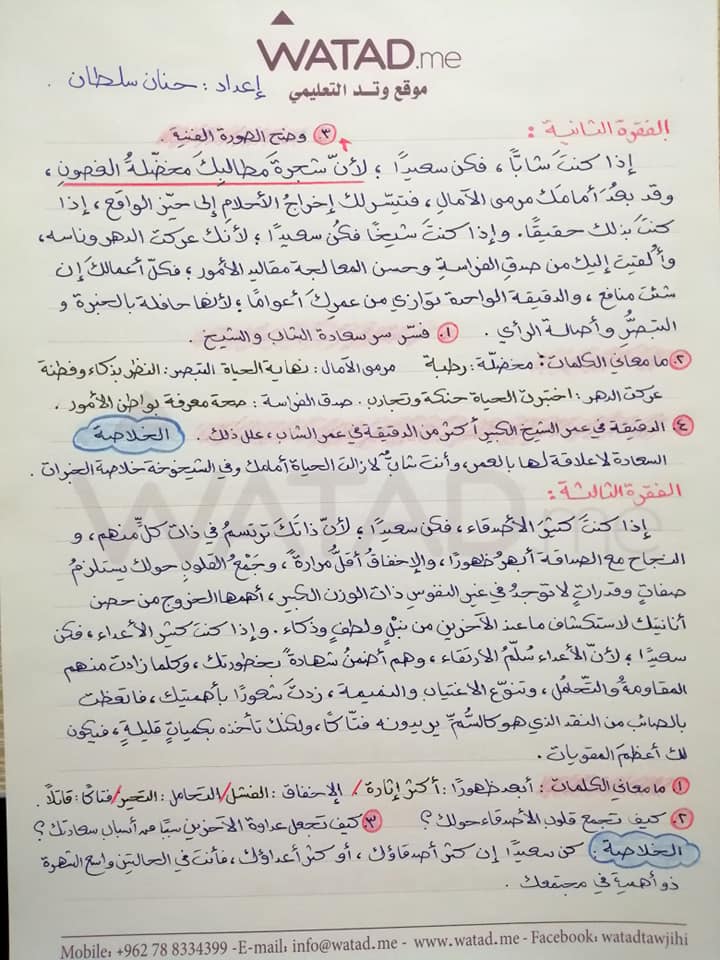 WATAD.me
موقع وتد التعليمي
إعداد : حنان سلطان .
الفقرة الثانية :
٣ وضح الصورة الفنية .
إذا كنتَ شابًّا ، فكن سعيدًا ؛ لأنّ شجرةَ مطالبِكَ مخضلّةُ الغصونِ ،
وقد بعُدَ أمامَك مرمى الآمالِ ، فتيسّر لك إخراجُ الأحلامِ إلى حيّز الواقعِ ، إذا
كنتَ بذلك حقيقًا. وإذا كنتَ شيخًا فكُن سعيدًا ؛ لأنك عركت الدهر وناسه،
وأُلقيت إليك من صدق الفراسةِ وحسن المعالجة مقاليد الأمور ؛ فكلّ أعمالك إن
شئتَ منافع ، والدقيقة الواحدة توازي من عمرِك أعوامًا ؛ لأنها حافلة بالخبرة و
التبصُّر وأصالة الرأي .
١. فسّر سر سعادة الشاب والشيخ .
٢. ما معاني الكلمات : مخضلّة : رطبة مرمى الآمال : نهاية الحياة التبصر : النظر بذكاء وفطنة
عركت الدهر : اختبرت الحياة حنكة وتجارب . صدق الفراسة : صحة معرفة بواطن الأمور .
٤ الدقيقة في عمر الشيخ الكبير أكثر من الدقيقة في عمر الشاب ، علل ذلك .
الخلاصة
السعادة لا علاقة لها بالعمر، وأنت شابٌ لازالت الحياة أمامك وفي الشيخوخة خلاصة الخبرات .
الفقرة الثالثة :
إذا كنتَ كثيرَ الأصدقاء ، فكن سعيدًا ؛ لأنّ ذاتَكَ ترتسمُ في ذات كلٍّ منهم ، و
النجاح مع الصداقة أبهرُ ظهورًا ، والإخفاقُ أقلُّ مرارةً ، وجَمْعُ القلوبِ حولك يستلزمُ
صفاتٍ وقدراتٍ لا توجدُ في غيرِ النفوسِ ذات الوزن الكبير ، أهمها الخروج من حصن
أنانيتك لاستكشاف ما عند الآخرين من نبلٍ ولطفٍ وذكاء . وإذا كنت كثير الأعداء ، فكن
سعيدًا ؛ لأنّ الأعداء سُلّمُ الارتقاء ، وهم أضمنُ شهادةً بخطورتك ، وكلما زادت منهم
المقاومةُ والتّحاملُ ، وتنوّع الاغتياب والنميمة ، زدتَ شعورًا بأهميتك ، فاتعظت
بالصائب من النقد الذي هو كالسُّمّ يريدونه فتّاكًا، ولكنك تأخذه بكمياتٍ قليلةٍ، فيكون
لك أعظمَ المقويات .
١ ما معاني الكلمات : أبعد ظهورًا : أكثر إثارة / الإخفاق : الفشل / التحامل : التحيز / فتاكًا : قاتلاً .
٢. كيف تجمع قلوب الأصدقاء حولك ؟ ٣ كيف تجعل عداوة الآخرين سببًا من أسباب سعادتك ؟
الخلاصة . كن سعيدًا إن كثر أصدقاؤك ، أو كثر أعداؤك ، فأنت في الحالتين واسع الشهرة
ذو أهمية في مجتمعك .
Mobile: +962 78 8334399 -E-mail: info@watad.me - www.watad.me - Facebook: watadtawjihi